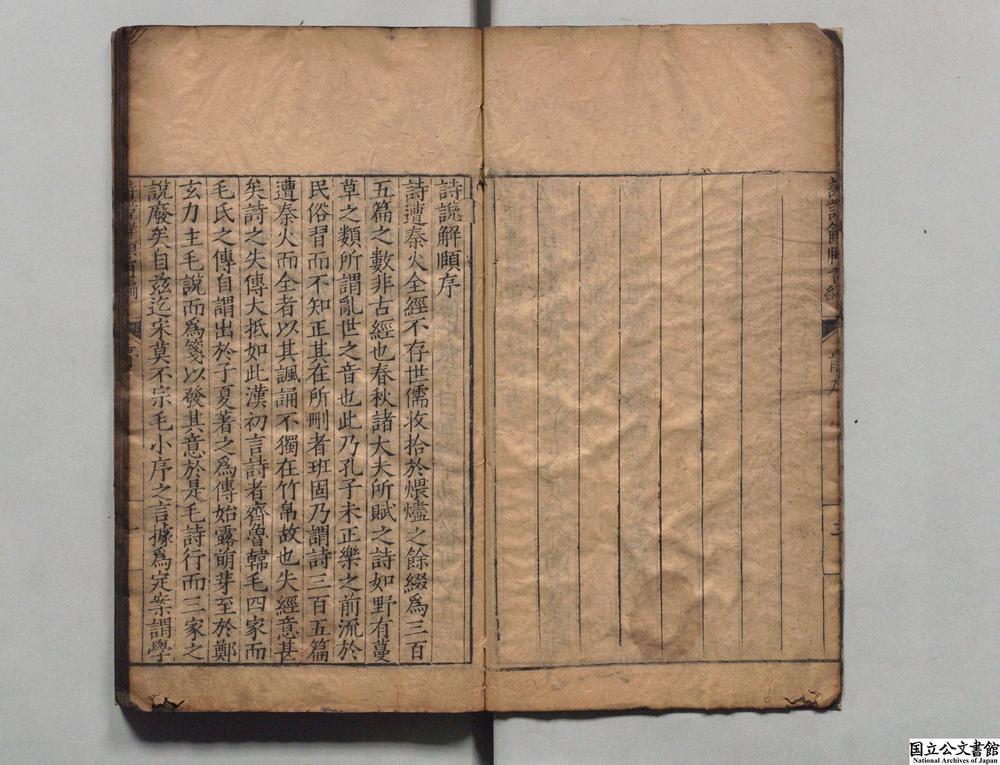 詩說解頤序
詩遭秦火全經不存世儒收拾於煨燼之餘綴爲三百
五篇之數非古經也春秋諸大夫所賦之詩如野有蔓
草之類所謂亂世之音也此乃孔子未正樂之前流於
民俗習而不知正其在所刪者班固乃謂詩三百五篇
遭秦火而全者以其諷誦不獨在竹帛故也失經意甚
矣詩之失傳大抵如此漢初言詩者齊魯韓毛四家而
毛氏之傳自謂出於子夏著之爲傳始露萌芽至於鄭
玄力主毛說而爲箋以發其意於是毛詩行而三家之
說廢矣自茲迄宋莫不宗毛小序之言據爲定案謂學
国立公文書館
National Archives of Japan